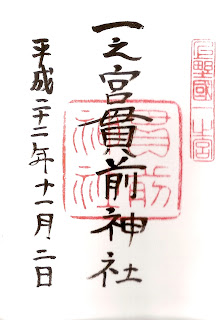 上野國一之宮
一之宮貫前神社
貫前
神社
平成二十二年十一月二日